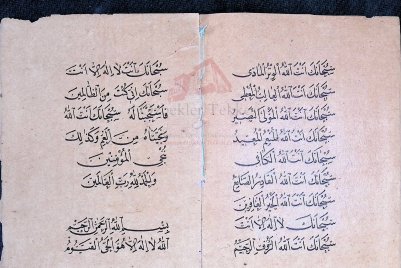 سبحانك انت الله الوتر الهادى
سبحانك انت الله الغالب المعطى
سبحانك انت الله المولى النصير
سبحانك انت الله
سبحانك انت الله الكافى
سبحانك انت الله القادر الصانع
سبحانك انت الله خير الغافرين
سبحانك لا اله الا انت
سبحانك انت الله الرؤف الرحيم
سبحانك لا اله الا انت
سبحانك انى كنت من الظالمين
فاستجبنا له سبحانك انت الله
ونجيناه من الغم وكذلك
ننجى المؤمنين
والحمد لله رب العالمين
بسم الله الرحمن الرحيم
الله لا اله الا هو الحى القيوم